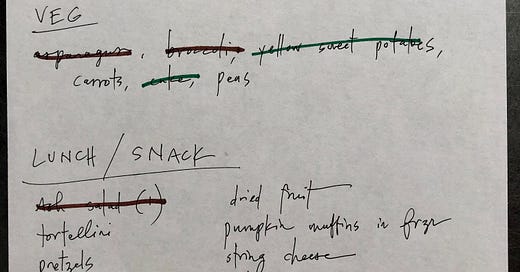 VEG
asparagus, broccoli, yellow sweet potatoes,
carrots, cuke, peas
LUNCH / SNACK
salad (1)
tortellini
pretzels
dried fruit
pumpkin muffins in frzr
string cheese